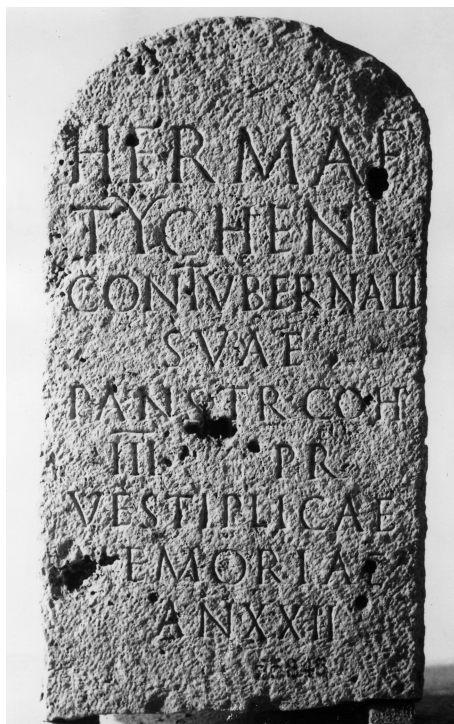 HERMAE
TYCHENI
CONTVBERNALI
SVAE
PANSTR COH
III PR
VESTIPLICAE
EMORIAE
ANXXII